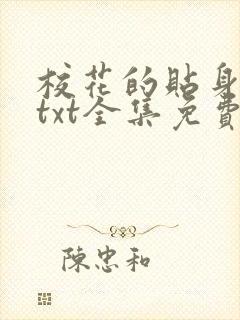 校花的貼身
txt全集免費
陳忠和